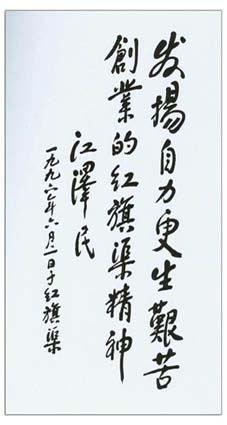 发揚自力更生艱苦
創業的红旗渠精神
江澤民
一九九六年六月一日于红旗渠